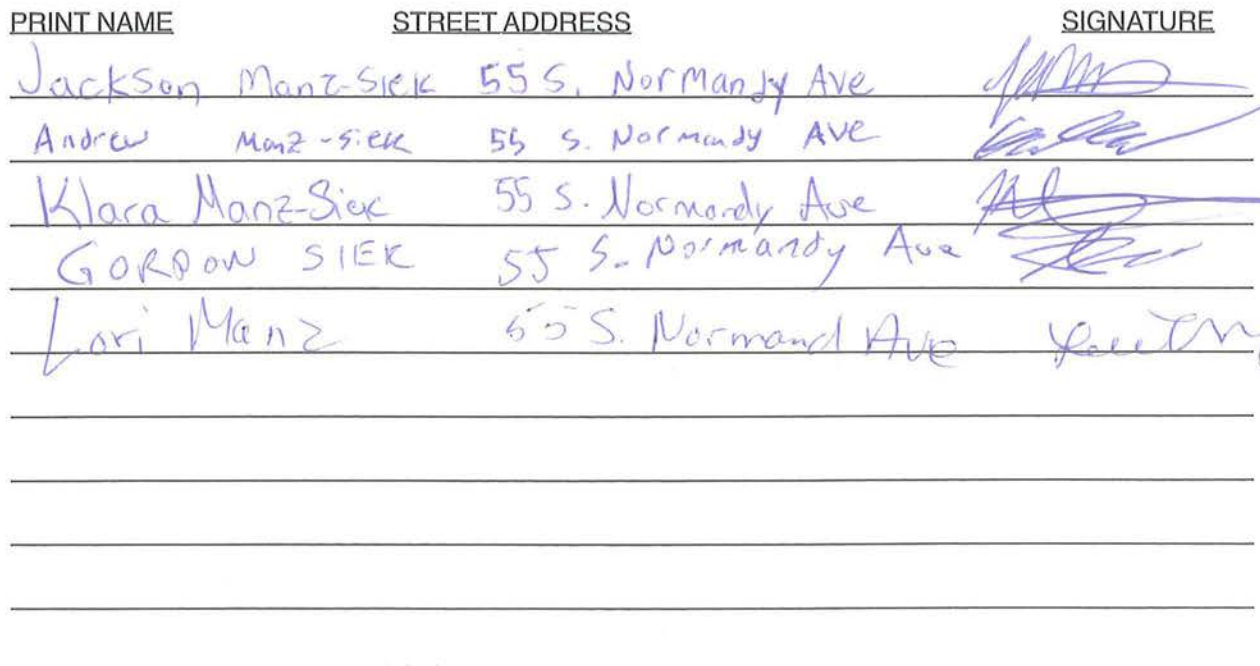 PRINT NAME STREET ADDRESS SIGNATURE
Jackson Manz-Siek 55 S. Normandy Ave
Andrew Manz-Siek 55 S. Normandy AVE
Klara Manz-Siek 55 S. Normandy Ave
GORDON SIEK 55 S. Normandy Ave
Lori Manz 55 S. Normand Ave